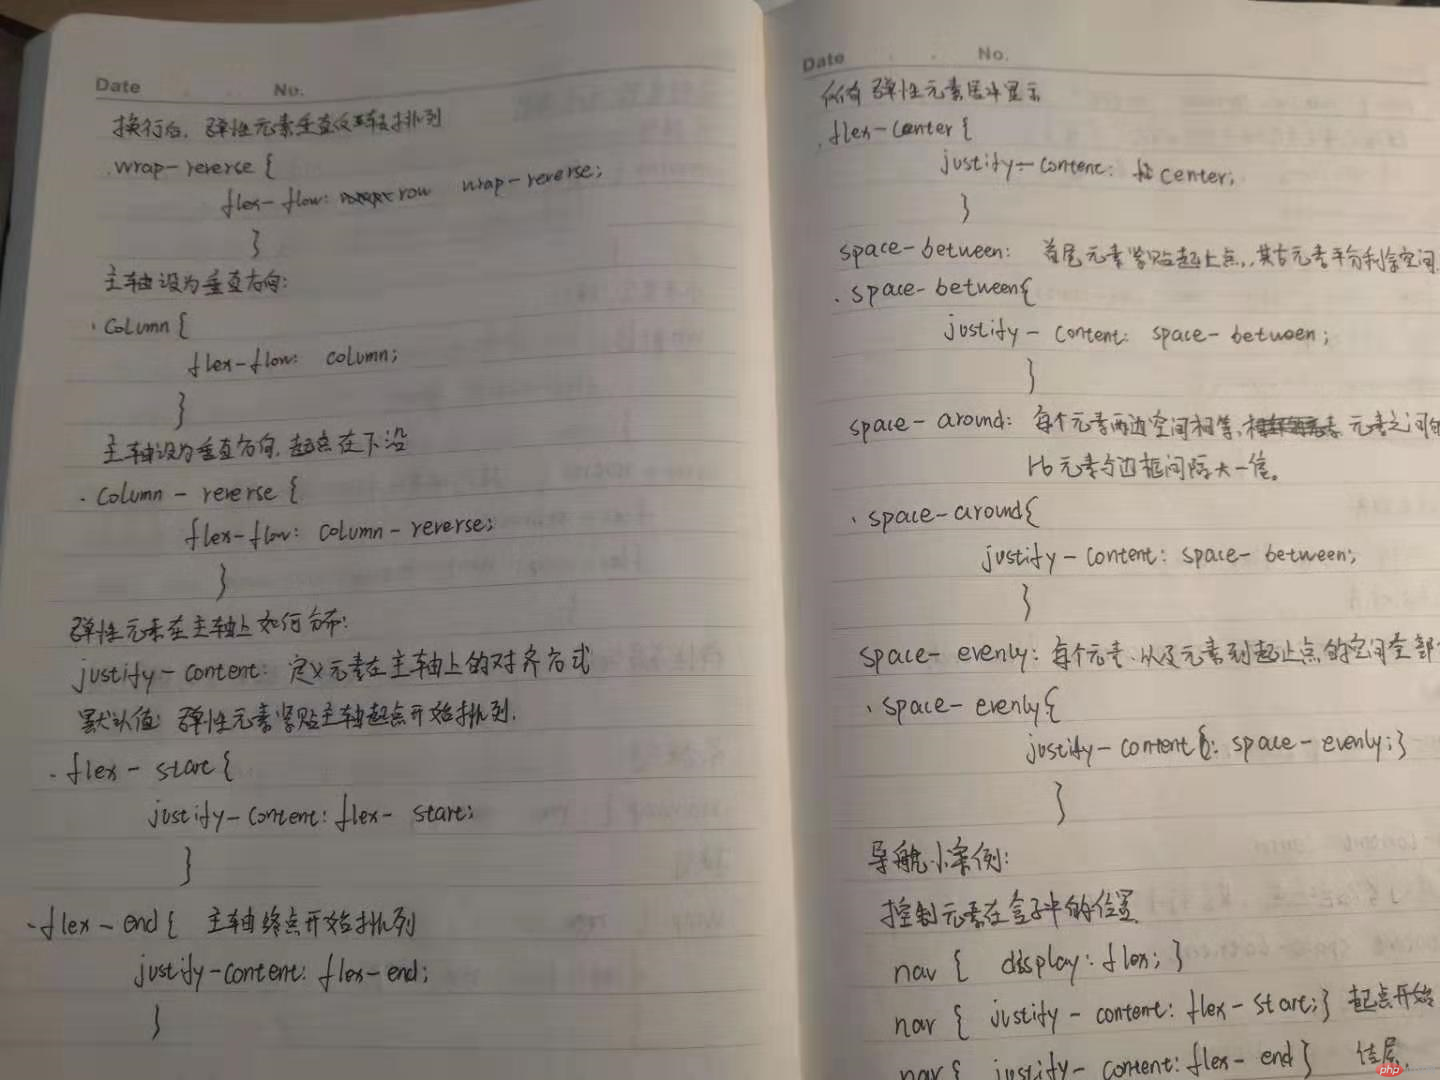 Date No.
换行后，弹性元素垂直反转排列
.wrap-reverse {
flex-flow: row wrap-reverse;
}
主轴设为垂直方向:
.column {
flex-flow: column;
}
主轴设为垂直方向,起点在下沿
.column-reverse {
flex-flow: column-reverse;
}
弹性元素在主轴上如何分布:
justify-content: 定义元素在主轴上的对齐方式
默认值: 弹性元素紧贴主轴起点开始排列.
.flex-start {
justify-content: flex-start;
}
.flex-end { 主轴终点开始排列
justify-content: flex-end;
}
Date No.
所有弹性元素居中显示
.flex-center {
justify-content: center;
}
space-between: 首尾元素紧贴起止点,其古元素平分剩余空间
.space-between{
justify-content: space-between;
}
space-around: 每个元素两边空间相等, 元素之间的
比元素与边框间隔大一倍。
.space-around{
justify-content: space-between;
}
space-evenly: 每个元素、以及元素到起止点的空间全部
.space-evenly{
justify-content: space-evenly;}
}
导航小案例:
控制元素在盒子中的位置
nav { display: flex; }
nav { justify-content: flex-start;} 起点开始
nav { justify-content: flex-end}
php